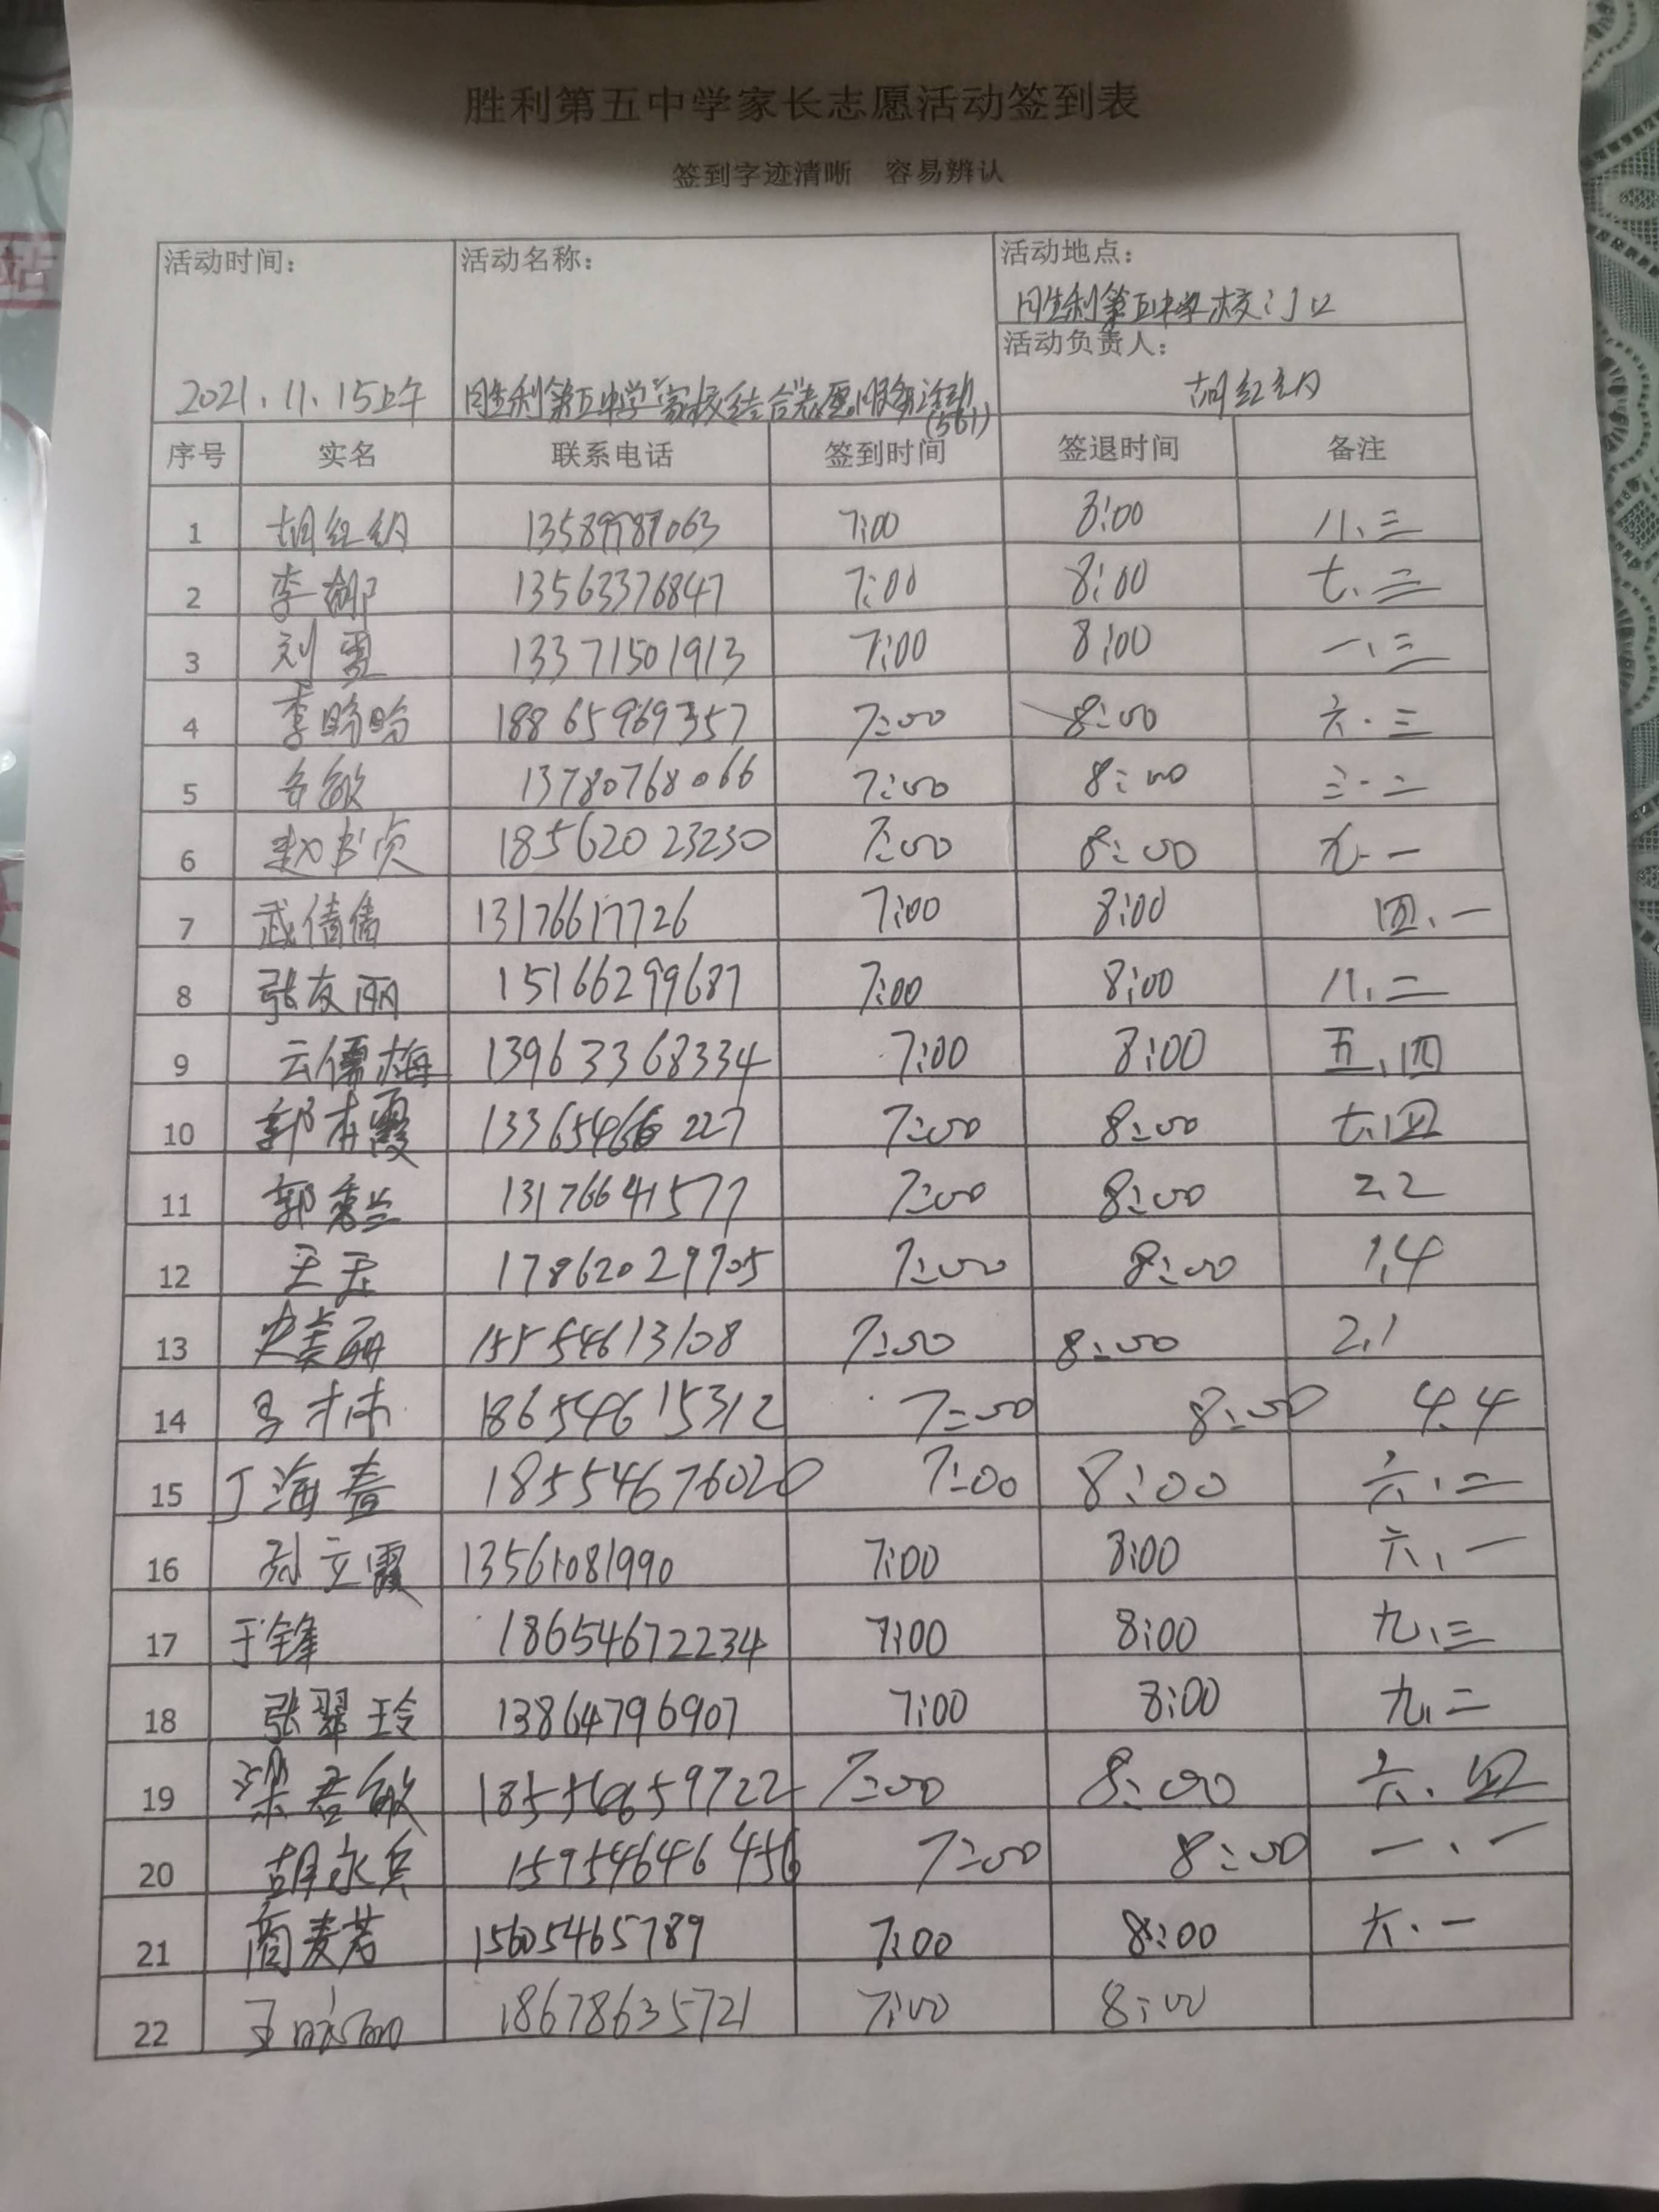 胜利第五中学家长志愿活动签到表
签到字迹清晰 容易辨认
活动时间: 活动名称: 活动地点:
胜利第五中学校门口
活动负责人:
2021.11.15上午 胜利第五中学"家校结合"志愿服务活动 胡红娟
(561)
序号 实名 联系电话 签到时间 签退时间 备注
1 胡红娟 13589987063 7:00 8:00 八.三
2 李娜 13563376847 7:00 8:00 七.三
3 刘雪 13371501913 7:00 8:00 一、三
4 李盼盼 18865969357 7:00 8:00 六.三
5 13780768066 7:00 8:00 三.二
6 赵书贞 18562023230 7:00 8:00 九.一
7 武倩倩 13176617726 7:00 8:00 四、一
8 张友丽 15166299687 7:00 8:00 八.二
9 云儒梅 13963368334 7:00 8:00 五、四
10 郭有霞 13365466227 7:00 8:00 七.四
11 郭秀兰 13176641577 7:00 8:00 2.2
12 王玉 17862029705 7:00 8:00 1.4
13 史美丽 15554613108 7:00 8:00 2.1
14 18654615312 7:00 8:00 4.4
15 丁海春 18554676020 7:00 8:00 六.二
16 孙立霞 13561081990 7:00 8:00 六、一
17 于锋 18654672234 7:00 8:00 九.三
18 张翠玲 13864796907 7:00 8:00 九.二
19 梁君敏 7:00 8:00 六.四
20 胡永兵 15954646456 7:00 8:00 一、一
21 商麦若 15605465789 7:00 8:00 六.一
22 18678635721 7:00 8:00